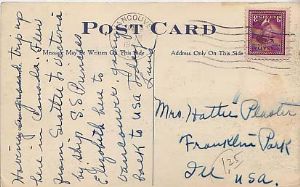 POST CARD
VANCOUVER
Message May Be Written On This Side
Address Only On This Side
Having a grand trip up
here in Canada. Flew
from Seattle to Victoria
by ship S.S. Princess
Elizabeth here to
Vancouver
back to USA today
Mrs. Hattie Plaster
Franklin Park
Ill USA.
125